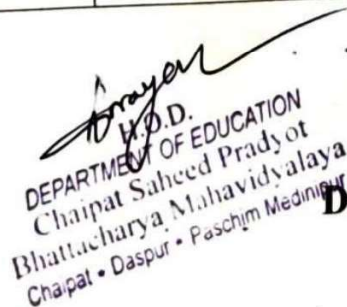 H.O.D.
DEPARTMENT OF EDUCATION
Chaipat Saheed Pradyot
Bhattacharya Mahavidyalaya
Chaipat • Daspur • Paschim Medinipur
D